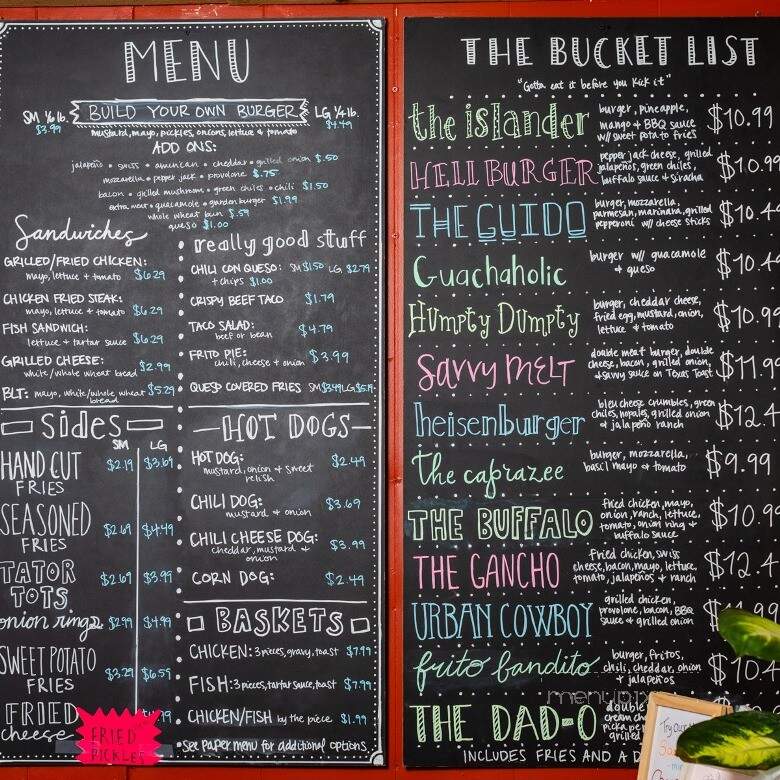 MENU
SM 1/6 lb.
$3.99
BUILD YOUR OWN BURGER
LG 1/4 lb.
$4.49
mustard, mayo, pickles, onions, lettuce & tomato
ADD ONS:
jalapeño • swiss • american • cheddar • grilled onion $.50
mozzarella • pepper jack • provolone $.75
bacon • grilled mushroom • green chiles • chili $1.50
extra meat • guacamole • garden burger $1.99
whole wheat bun $.59
queso $1.00
Sandwiches
GRILLED/FRIED CHICKEN:
mayo, lettuce + tomato $6.29
CHICKEN FRIED STEAK:
mayo, lettuce + tomato $6.29
FISH SANDWICH:
lettuce + tartar sauce $6.29
GRILLED CHEESE:
white/whole wheat bread $2.99
BLT: mayo, white/whole wheat bread $5.29
really good stuff
CHILI CON QUESO: SM $1.50 LG $2.79
+ chips $1.00
CRISPY BEEF TACO $1.79
TACO SALAD: $4.79
beef or bean
FRITO PIE: $3.99
chili, cheese + onion
QUESO COVERED FRIES SM $3.49 LG
Sides
SM LG
HAND CUT FRIES $2.19 $3.69
SEASONED FRIES $2.69 $4.49
TATOR TOTS $2.69 $3.99
onion rings $2.99 $4.99
SWEET POTATO FRIES $3.29 $6.59
FRIED cheese
FRIED PICKLES
HOT DOGS
HOT DOG: $2.49
mustard, onion & sweet relish
CHILI DOG: $3.69
mustard & onion
CHILI CHEESE DOG: $3.99
cheddar, mustard & onion
CORN DOG: $2.49
BASKETS
CHICKEN: 3 pieces, gravy, toast $7.99
FISH: 3 pieces, tartar sauce, toast $7.99
CHICKEN/FISH by the piece $1.99
*See paper menu for additional options.
THE BUCKET LIST
"Gotta eat it before you kick it"
the islander burger, pineapple, mango & BBQ sauce w/ sweet potato fries $10.99
HELL BURGER pepper jack cheese, grilled jalapeños, green chiles, buffalo sauce & siracha $10.9
THE GUIDO burger, mozzarella, parmesan, marinara, grilled pepperoni w/ cheese sticks $10.4
Guachaholic burger w/ guacamole & queso $10.4
Humpty Dumpty burger, cheddar cheese, fried egg, mustard, onion, lettuce & tomato $10.99
Savvy MELT double meat burger, double cheese, bacon, grilled onion & savvy sauce on Texas Toast $11.9
heisenburger bleu cheese crumbles, green chiles, nopales, grilled onion & jalapeño ranch $12.4
the caprazee burger, mozzarella, basil mayo & tomato $9.99
THE BUFFALO fried chicken, mayo, onion, ranch, lettuce, tomato, onion ring & buffalo sauce $10.9
THE GANCHO fried chicken, swiss cheese, bacon, mayo, lettuce, tomato, jalapeños & ranch $12.4
URBAN COWBOY grilled chicken, provolone, bacon, BBQ sauce & grilled onion
frito bandito burger, fritos, chili, cheddar, onion + jalapeños $10.4
THE DAD-O double
cream ch
grilled
INCLUDES FRIES AND A D
Try our
menupix